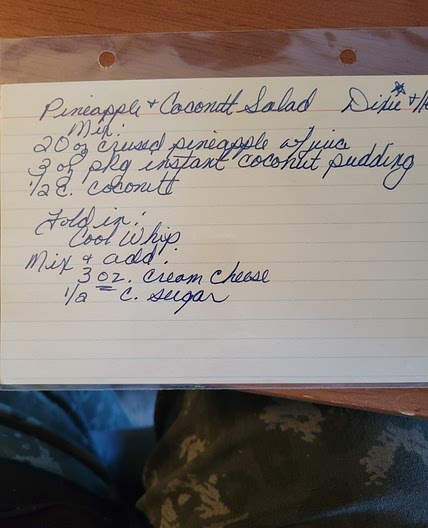 Pineapple + Coconutt Salad Dixie +
Mix:
20 oz crused pineapple w/juice
3 oz pkg instant coconut pudding
1/2 C. coconutt
Fold in:
Cool Whip
Mix + add:
3 oz. cream cheese
1/2 C. sugar